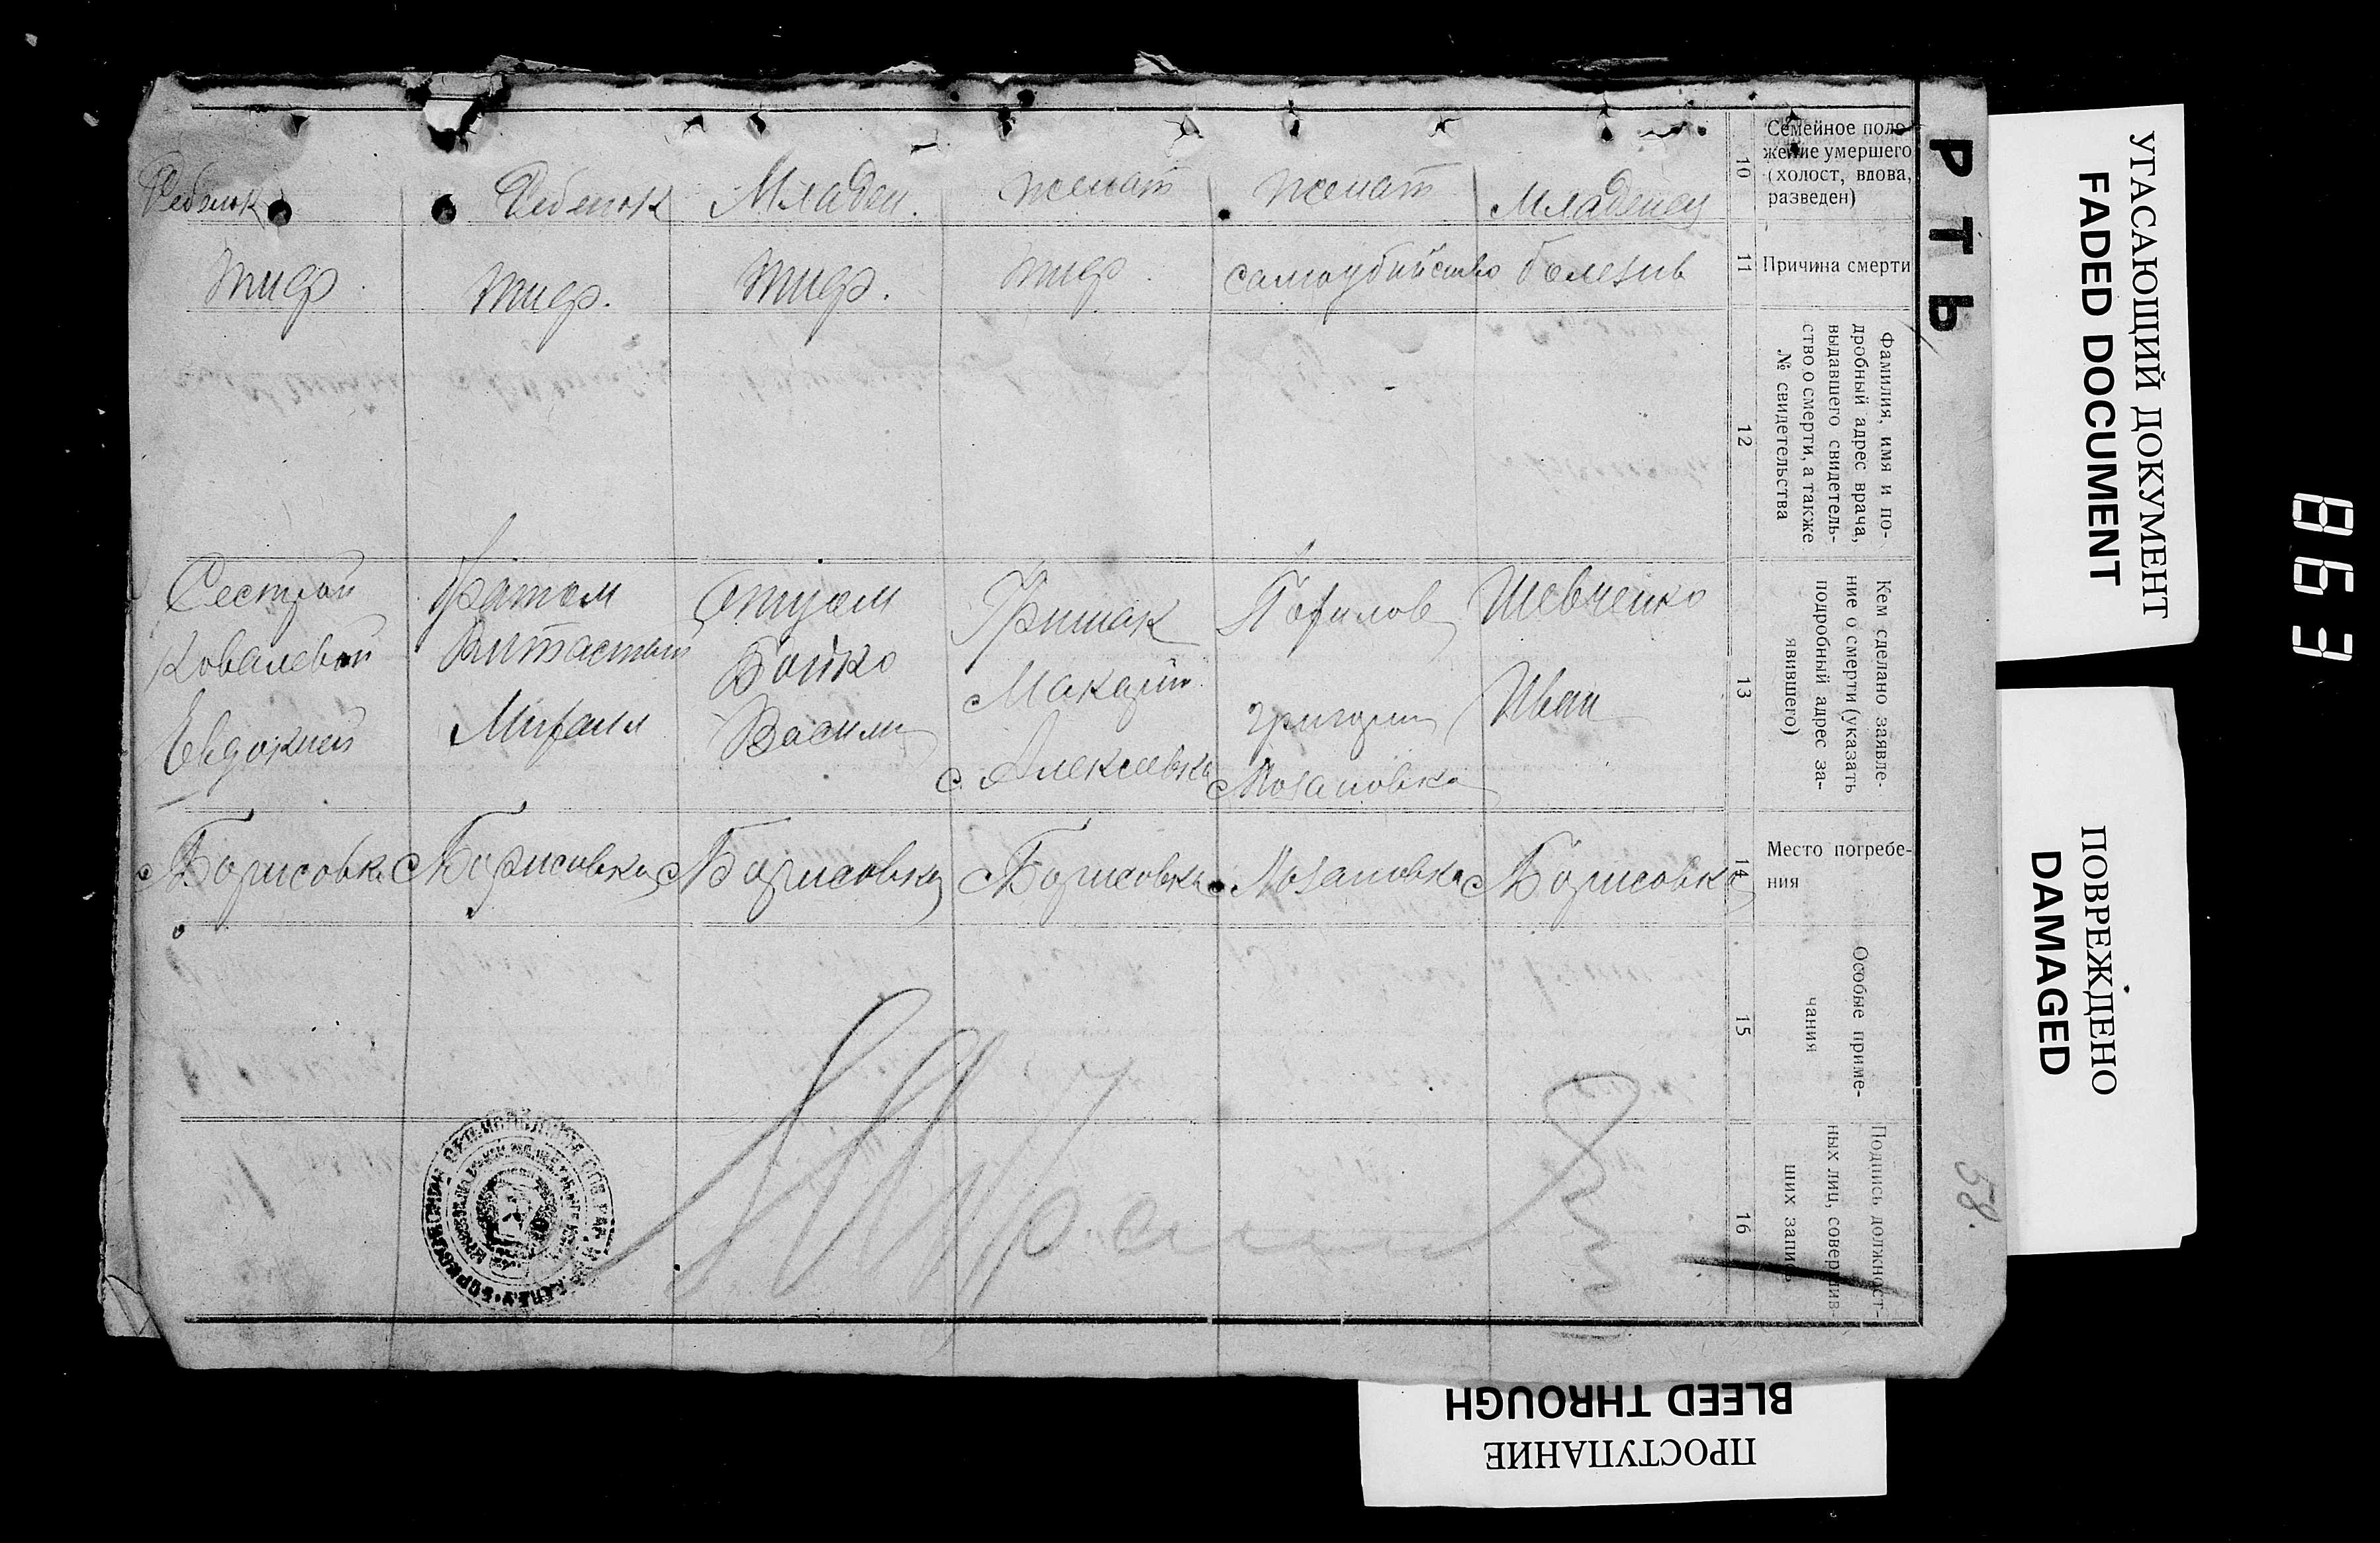 РТЬ
Семейное поло-
жение умершего
(холост, вдова,
разведен)
10
Ребенок
Ребенок
Младен.
женат
женат
Младенец
Причина смерти
11
тиф.
тиф.
тиф.
тиф.
самоубийство
болезнь
Фамилия, имя и по-
дробный адрес врача,
выдавшего свидетель-
ство о смерти, а также
№ свидетельства
12
Кем сделано заявле-
ние о смерти (указать
подробный адрес за-
явившего)
13
Сестрой
Ковалевой
Евдокией
братом
Отцом
Бойко
Василий
Гришак
Макарий
с. Алексеевка
Григорий
Мозановка
Шевченко
Иван
Место погребе-
ния
14
с Борисовка
с Борисовка
с Борисовка
с Борисовка
с. Мозановка
с Борисовка
Особые приме-
чания
15
Подпись должност-
ных лиц, совершив-
ших запись
16
58.
УГАСАЮЩИЙ ДОКУМЕНТ
FADED DOCUMENT
ПОВРЕЖДЕНО
DAMAGED
BLEED THROUGH
ПРОСТУПАНИЕ
863